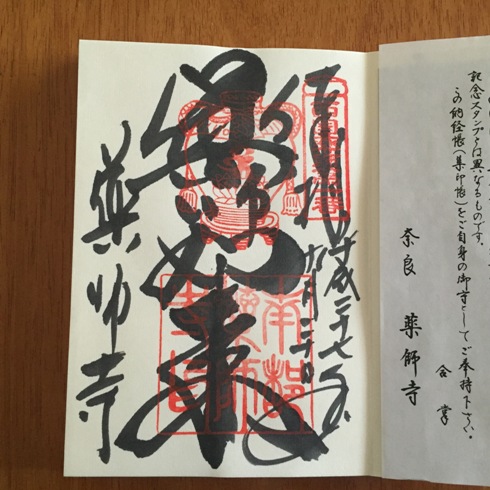 奉拝 平成二十七年
九月二十日
薬師如来
薬師寺
南都
薬師
寺印
記念スタンプとは異なるものです。
この納経帳(集印帳)をご自身の御守としてご奉持下さい。
合掌
奈良 薬師寺